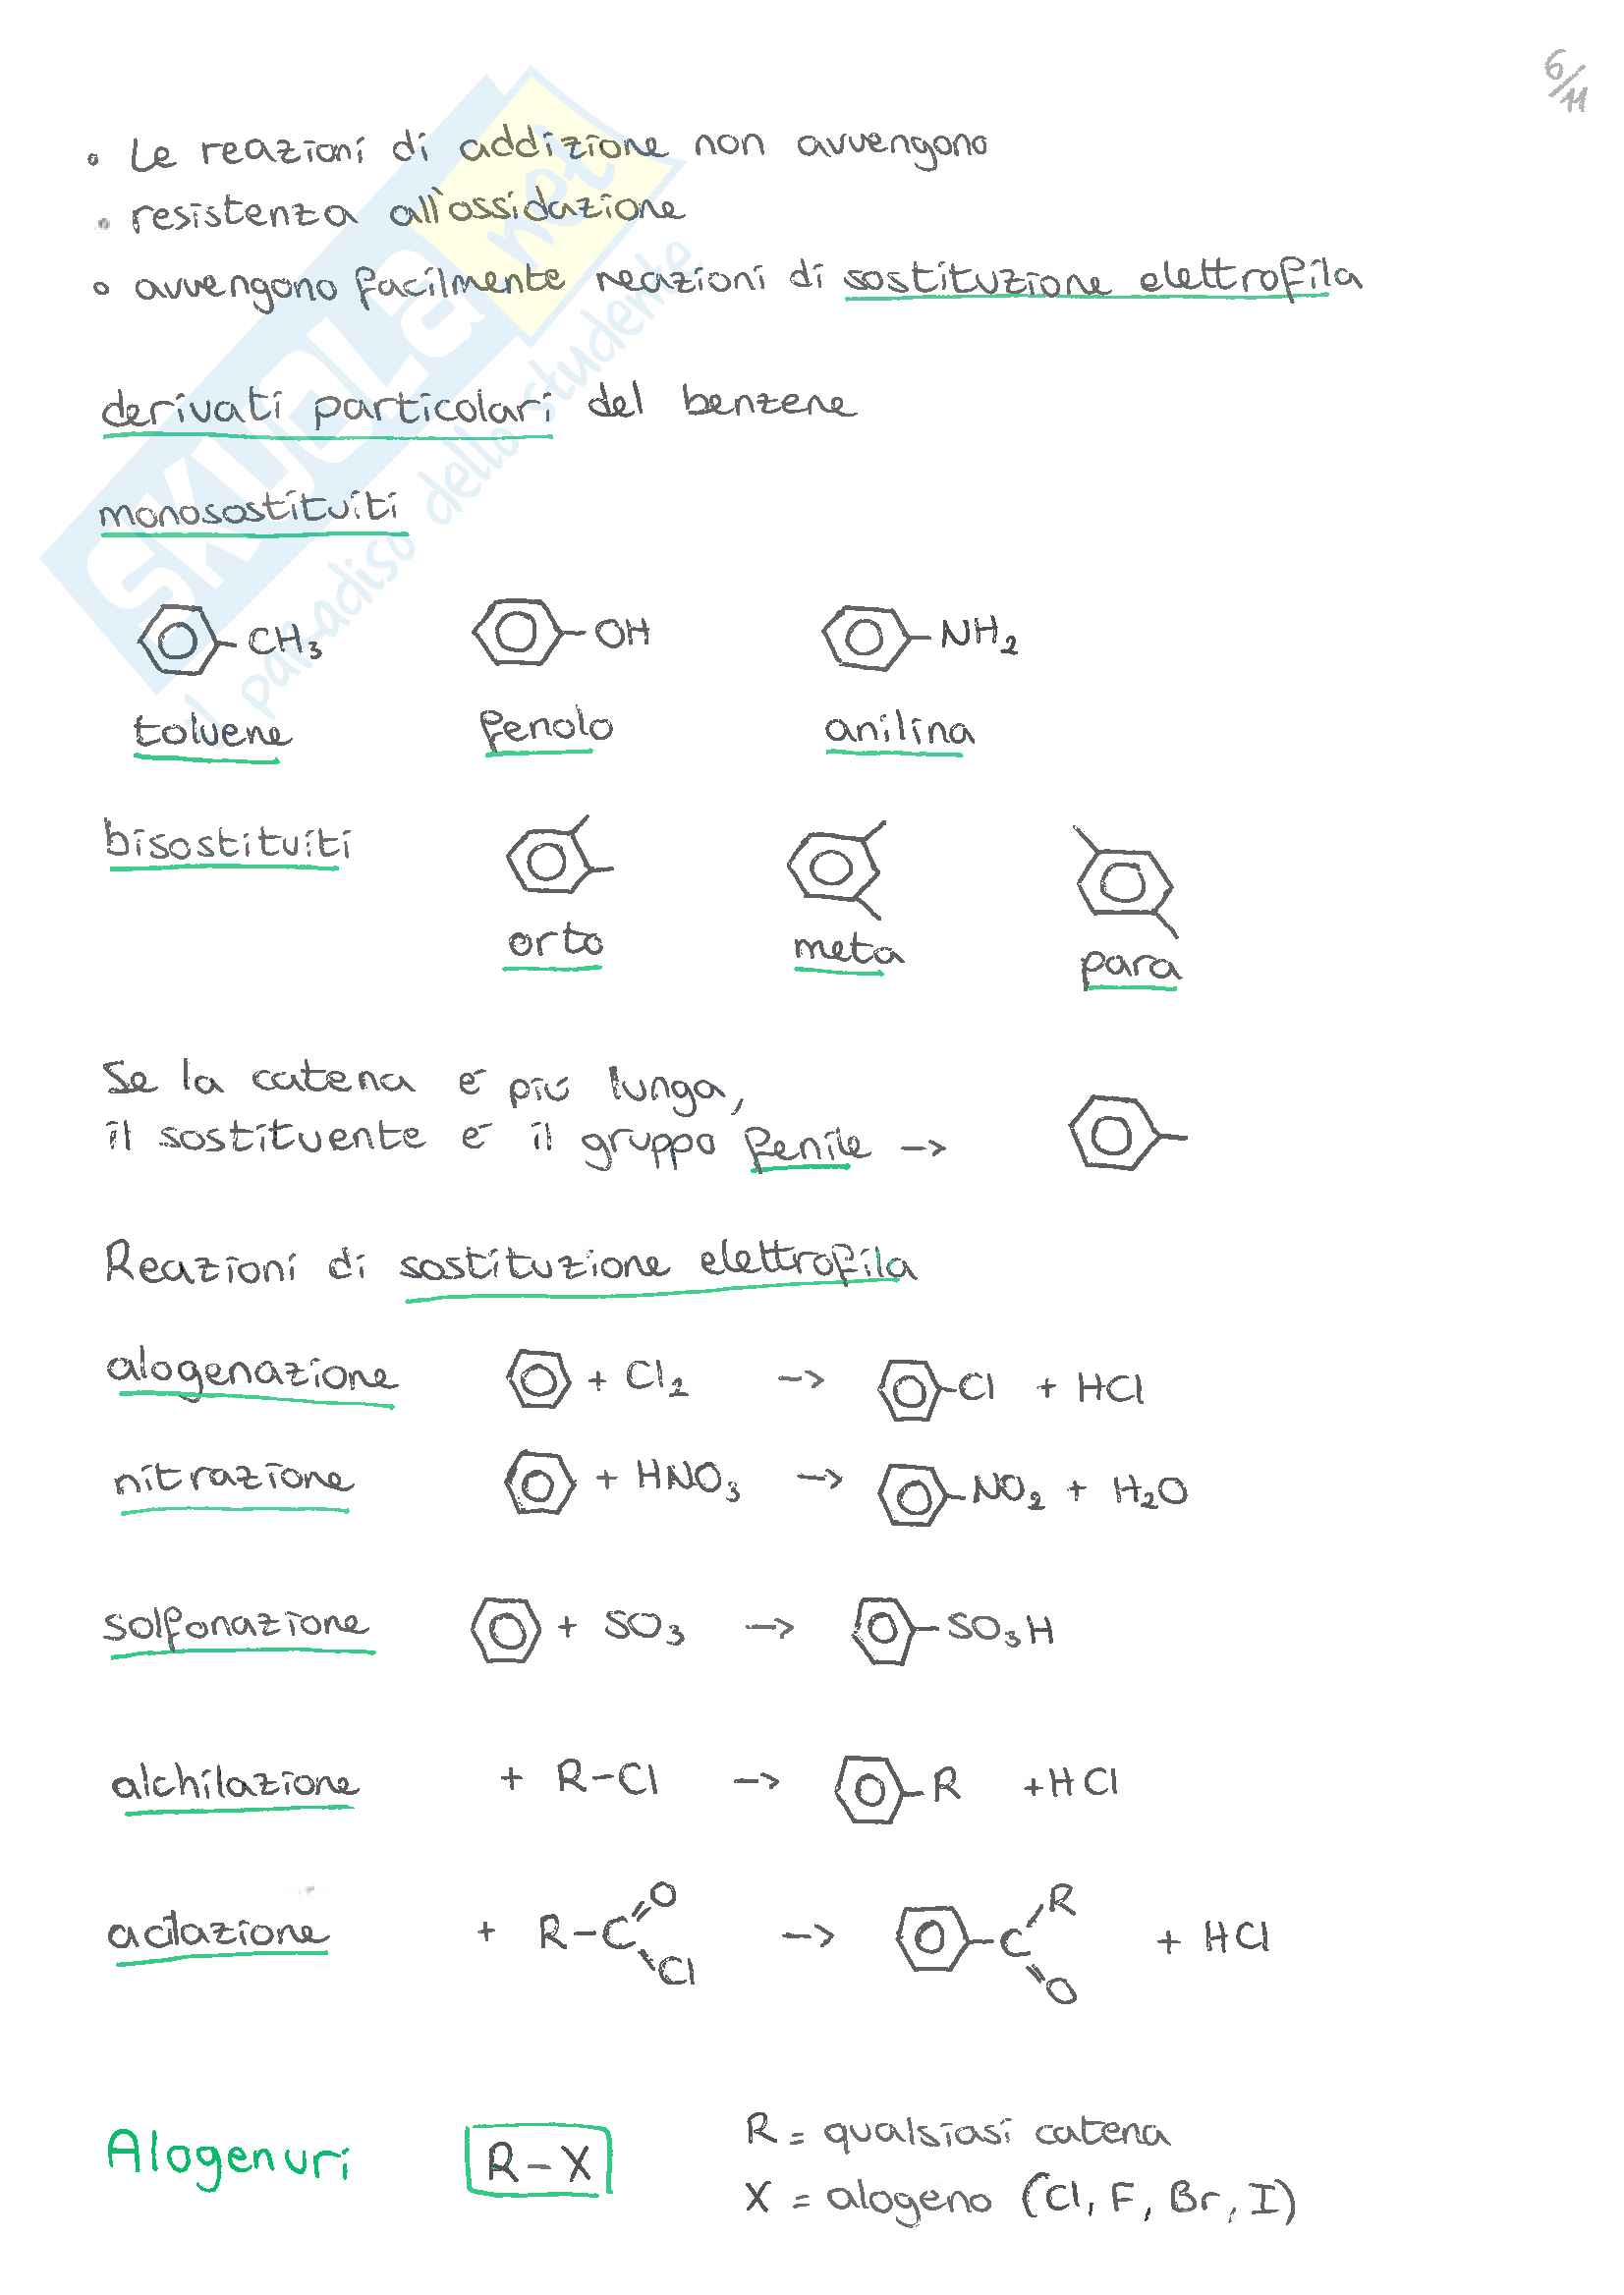 6/11
• Le reazioni di addizione non avvengono
• resistenza all'ossidazione
• avvengono facilmente reazioni di sostituzione elettrofila
derivati particolari del benzene
monosostituiti
CH3 OH NH2
toluene fenolo anilina
bisostituiti
orto meta para
Se la catena é piú lunga,
il sostituente é il gruppo fenile ->
Reazioni di sostituzione elettrofila
alogenazione + Cl2 -> Cl + HCl
nitrazione + HNO3 -> NO2 + H2O
solfonazione + SO3 -> SO3H
alchilazione + R-Cl -> R + HCl
acilazione + R-C O Cl -> C R O + HCl
Alogenuri R-X R = qualsiasi catena
X = alogeno (Cl, F, Br, I)
SKUOLA.net
il paradiso dello studente